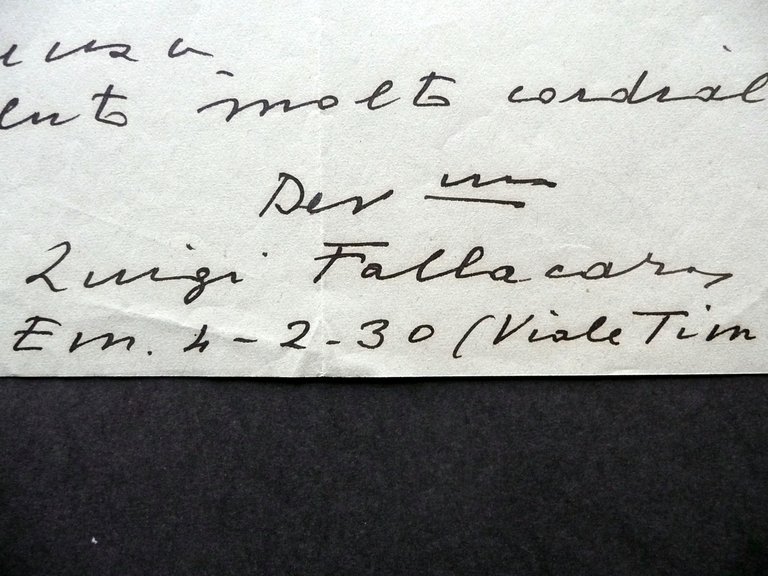 molto cordial
Dev mo
Luigi Fallacara
Em. 4-2-30 (Viale Tim